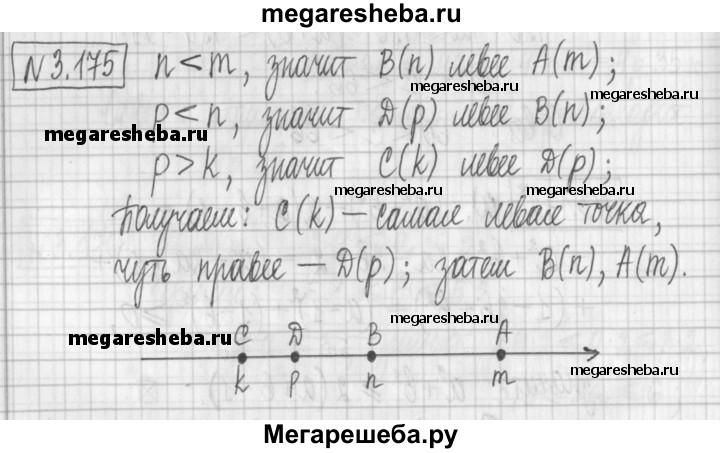 megaresheba.ru
N3.175 n<m, значит B(n) левее A(m);
p<n, значит D(p) левее B(n);
megaresheba.ru megaresheba.ru
p>k, значит C(k) левее D(p);
megaresheba.ru megaresheba.ru
Получаем: C(k) – самая левая точка,
чуть правее – D(p); затем B(n), A(m).
megaresheba.ru
megaresheba.ru C D B A
k p n m
megaresheba.ru
Мегарешеба.ру